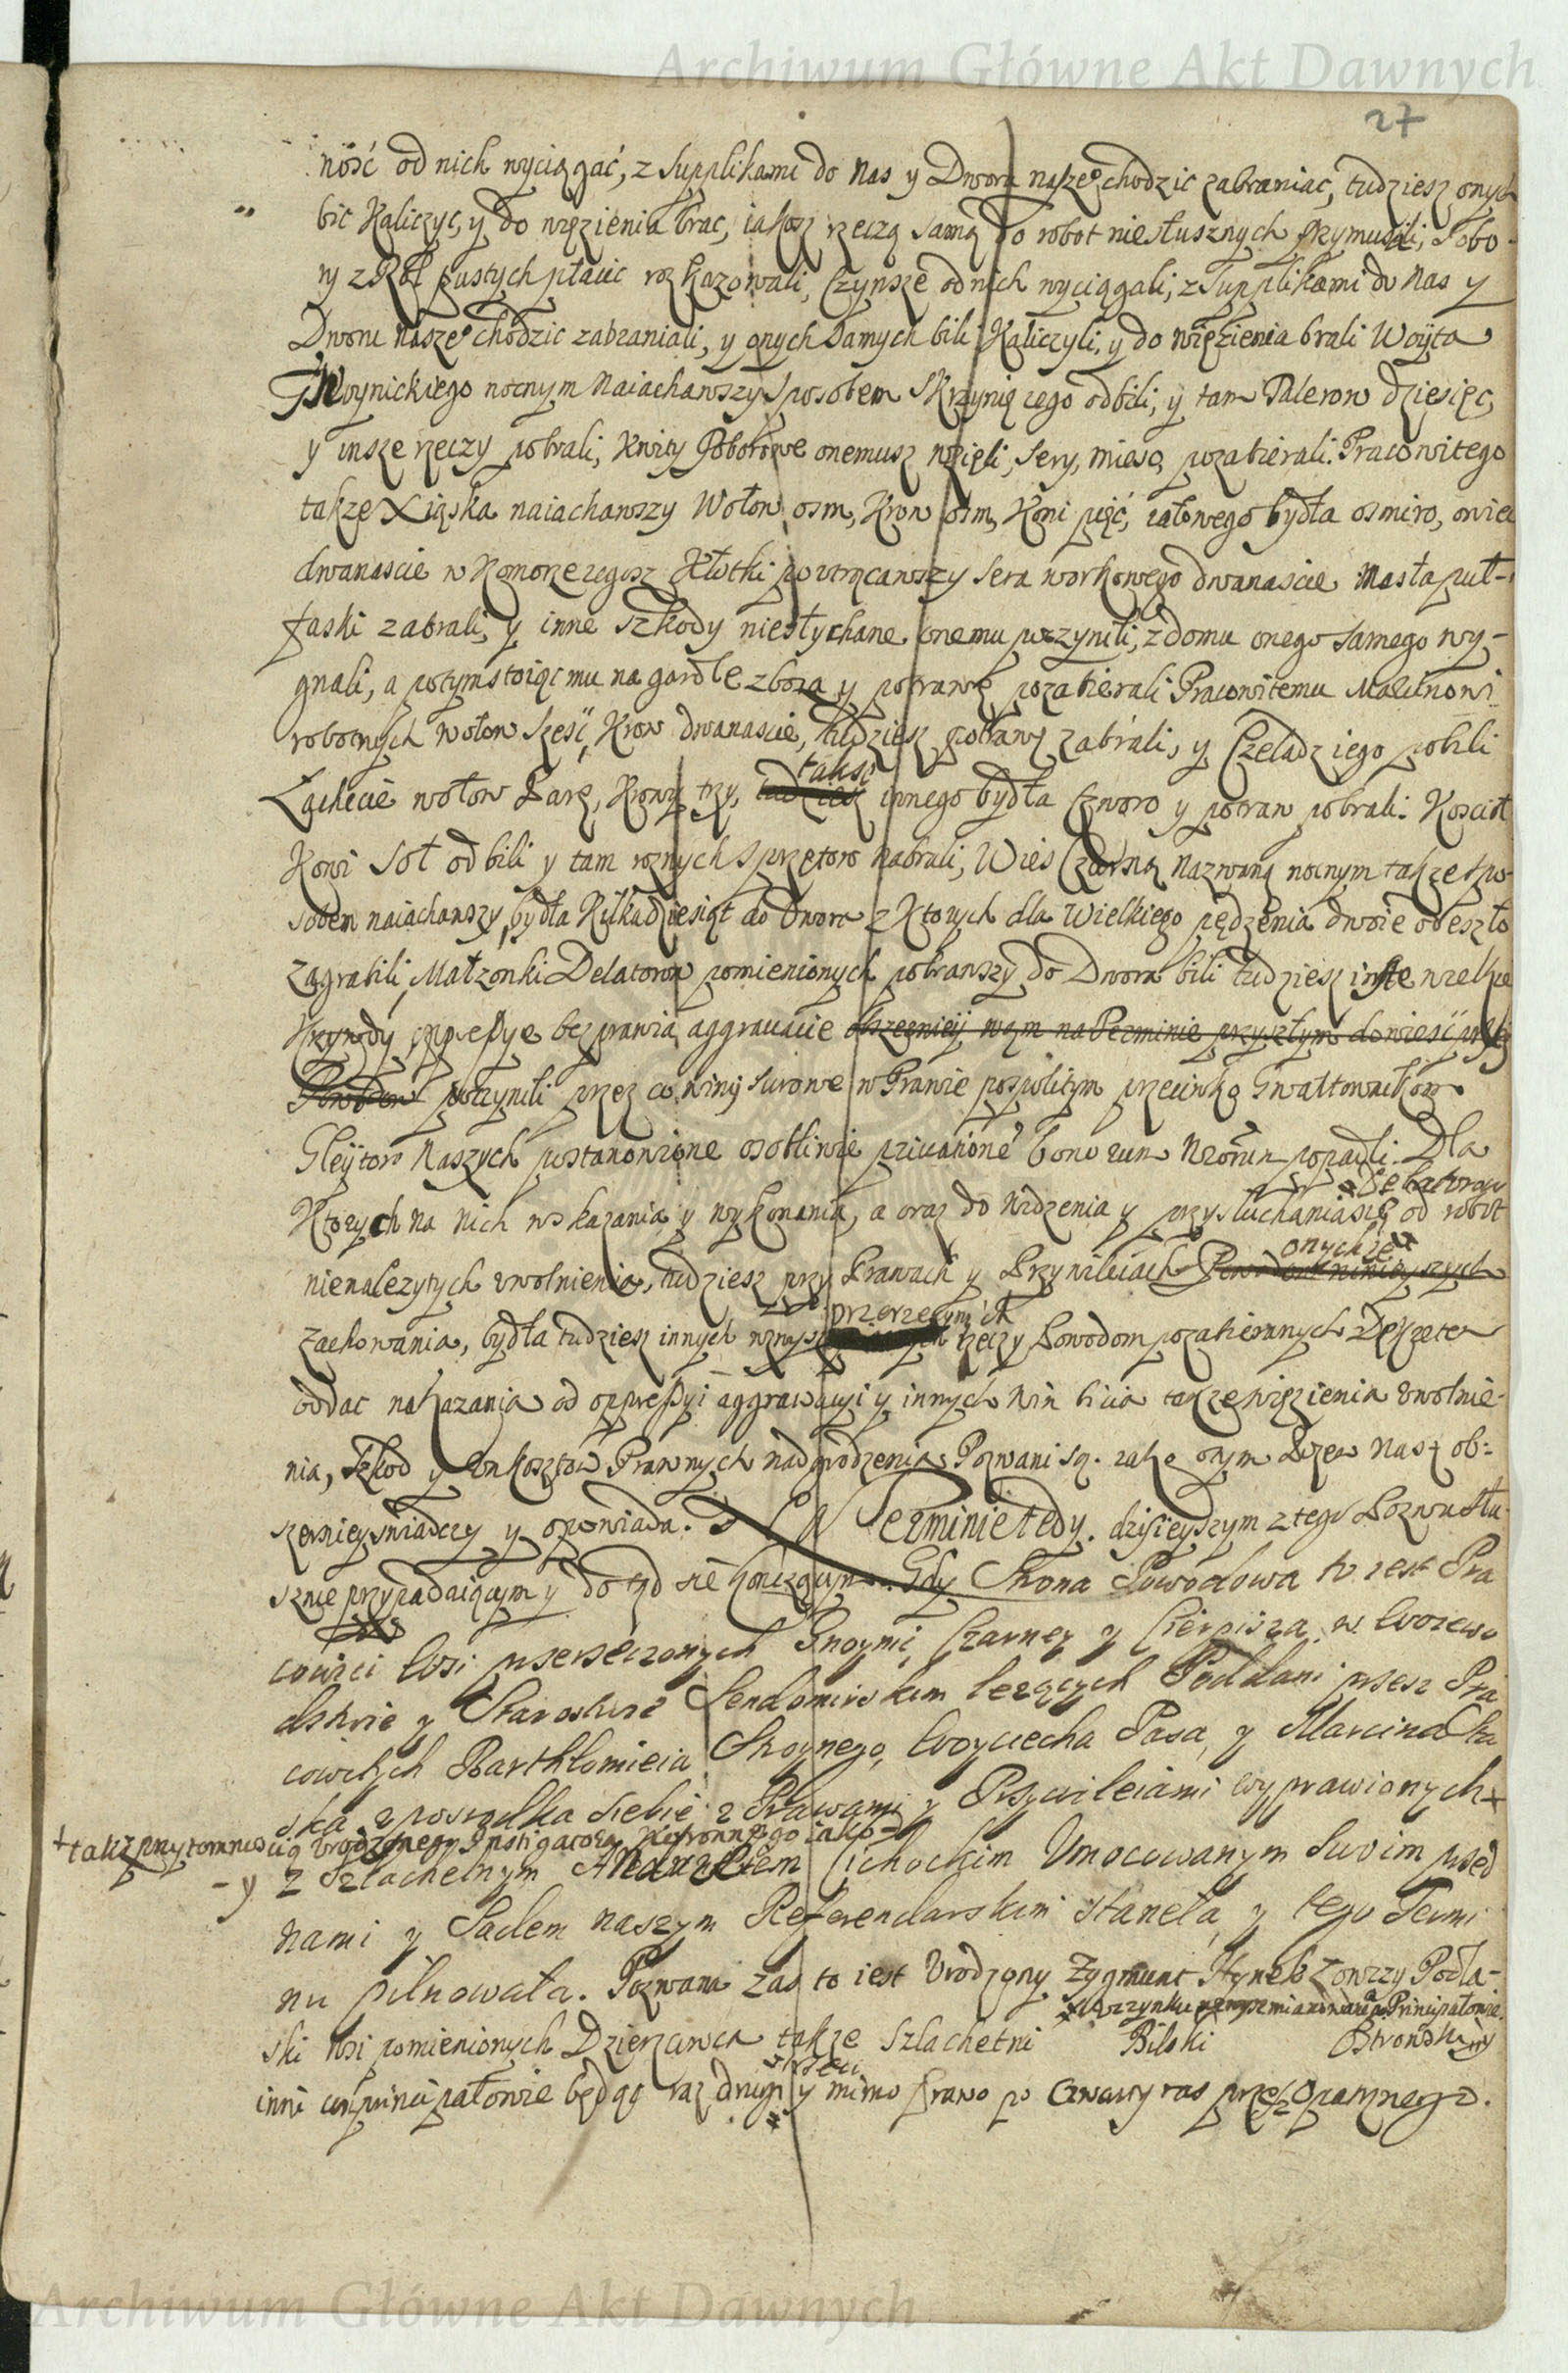 Archiwum Główne Akt Dawnych
27
ność od nich wyciągać, z Supplikami do Nas y Dworu naszego chodzic zabraniac, tudziesz onych
bic Kaliczyc, y do więzienia brac, iakosz rzeczą samą do robot niesłusznych przymusili, Pobo-
ry z Rol pustych płacic roskazowali, Czynsze od nich wyciągali, z Supplikami do Nas y
Dworu naszego chodzic zabraniali, y onych samych bili Kaliczyli, y do więzienia brali Woyta
Gnoynickiego nocnym naiachawszy sposobem Skrzynię iego odbili, y tam Talerow dziesięc,
y insze rzeczy pobrali, Kwity Poborowe onemusz wzięli, Sery, mięsa pozabierali. Pracowitego
takze Xiąska naiachawszy Wołow osm, Krow osm, Koni pięć, iałowego bydła osmiro, owiec
dwanascie w Komorze iegosz Kłotki poutrącawszy Sera workowego dwanascie Masła puł-
faski zabrali, y inne szkody niesłychane onemu poczynili, z domu onego samego wy-
gnali, a potym stoiąc mu na gardle zboza y potrawę pozabierali Pracowitemu Malcinowi
robotnych wołow szesć, Krow dwanascie, tudziesz potrawy zabrali, y Czeladz iego pobili
Łachecie wołow Parę, Krowy trzy, takze innego bydła Czworo y potraw pobrali. Kosciół
Kowi Soł odbili y tam roznych sprzętow nabrali, Wies Czarną nazwaną nocnym takze spo-
sobem naiachawszy, bydła Kilkadziesiąt do Dworu z Ktorych dla Wielkiego pędzenia dwoie odeszło
zagrabili, Małzonki Delatorow pomienionych pobrawszy do Dworu bili tudziesz inne wielkie
Krzywdy oppressye bezprawia aggrauacie obszerniey wam na Terminie przyszłym dowiesć
Powodow poczynili przez co winy surowe w Prawie pospolitym przeciwko Gwałtownikom
Gleytow Naszych postanowione osobliwie priuationis bonorum popadli. Dla
Delatorow
Ktorych na nich wskazania y wykonania, a oraz do Widzenia y przysłuchania się od robot
onychze
nienalezytych uwolnienia, tudziesz przy Prawach y Przywileiach
przerzeczonych
zachowania, bydła tudziesz innych rzeczy Powodom pozabieranych
oddac nakazania od oppressyi aggrawacyi y innych Win bicia takze więzienia uwolnie-
nia, Szkod y unkosztow Prawnych nadgrodzenia Pozwani są. iako o tym Pozew Nasz ob-
szerniey swiadczy y opowiada. Na Terminie tedy dzisieyszym z tego Pozwu słu-
sznie przypadaiącym y do tąd się kończącym. Gdy Strona Powodowa to iest Pra
cowici Wsi przerzeczonych Gnoyni, Czarney y Cierpisza w Woiewo
dztwie y Starostwie Sendomirskim lezących Poddani przez Pra
cowitych Barthłomieia Skoynego, Woyciecha Pasa, y Marcina
ska z posrodka siebie z Prawami y Przywileiami wyprawionych +
+ takze przytomnoscią Vrodzonego Instigatora Koronnego iako
-y z Szlachetnym Cichockim Vmocowanym Swoim przed
nami y Sądem naszym Referendarskim stanęła, y tego Termi
nu pilnowała. Pozwana zas to iest Vrodzony Zygmunt Hynek Łowczy Podla-
uczynku Principałowie
ski Wsi pomienionych Dzierzawca takze Szlachetni Bilski
trzeci
inni comprincipałowie będąc raz drugi y mimo Prawo po Czwarty raz przez Opatrznego.
Archiwum Główne Akt Dawnych